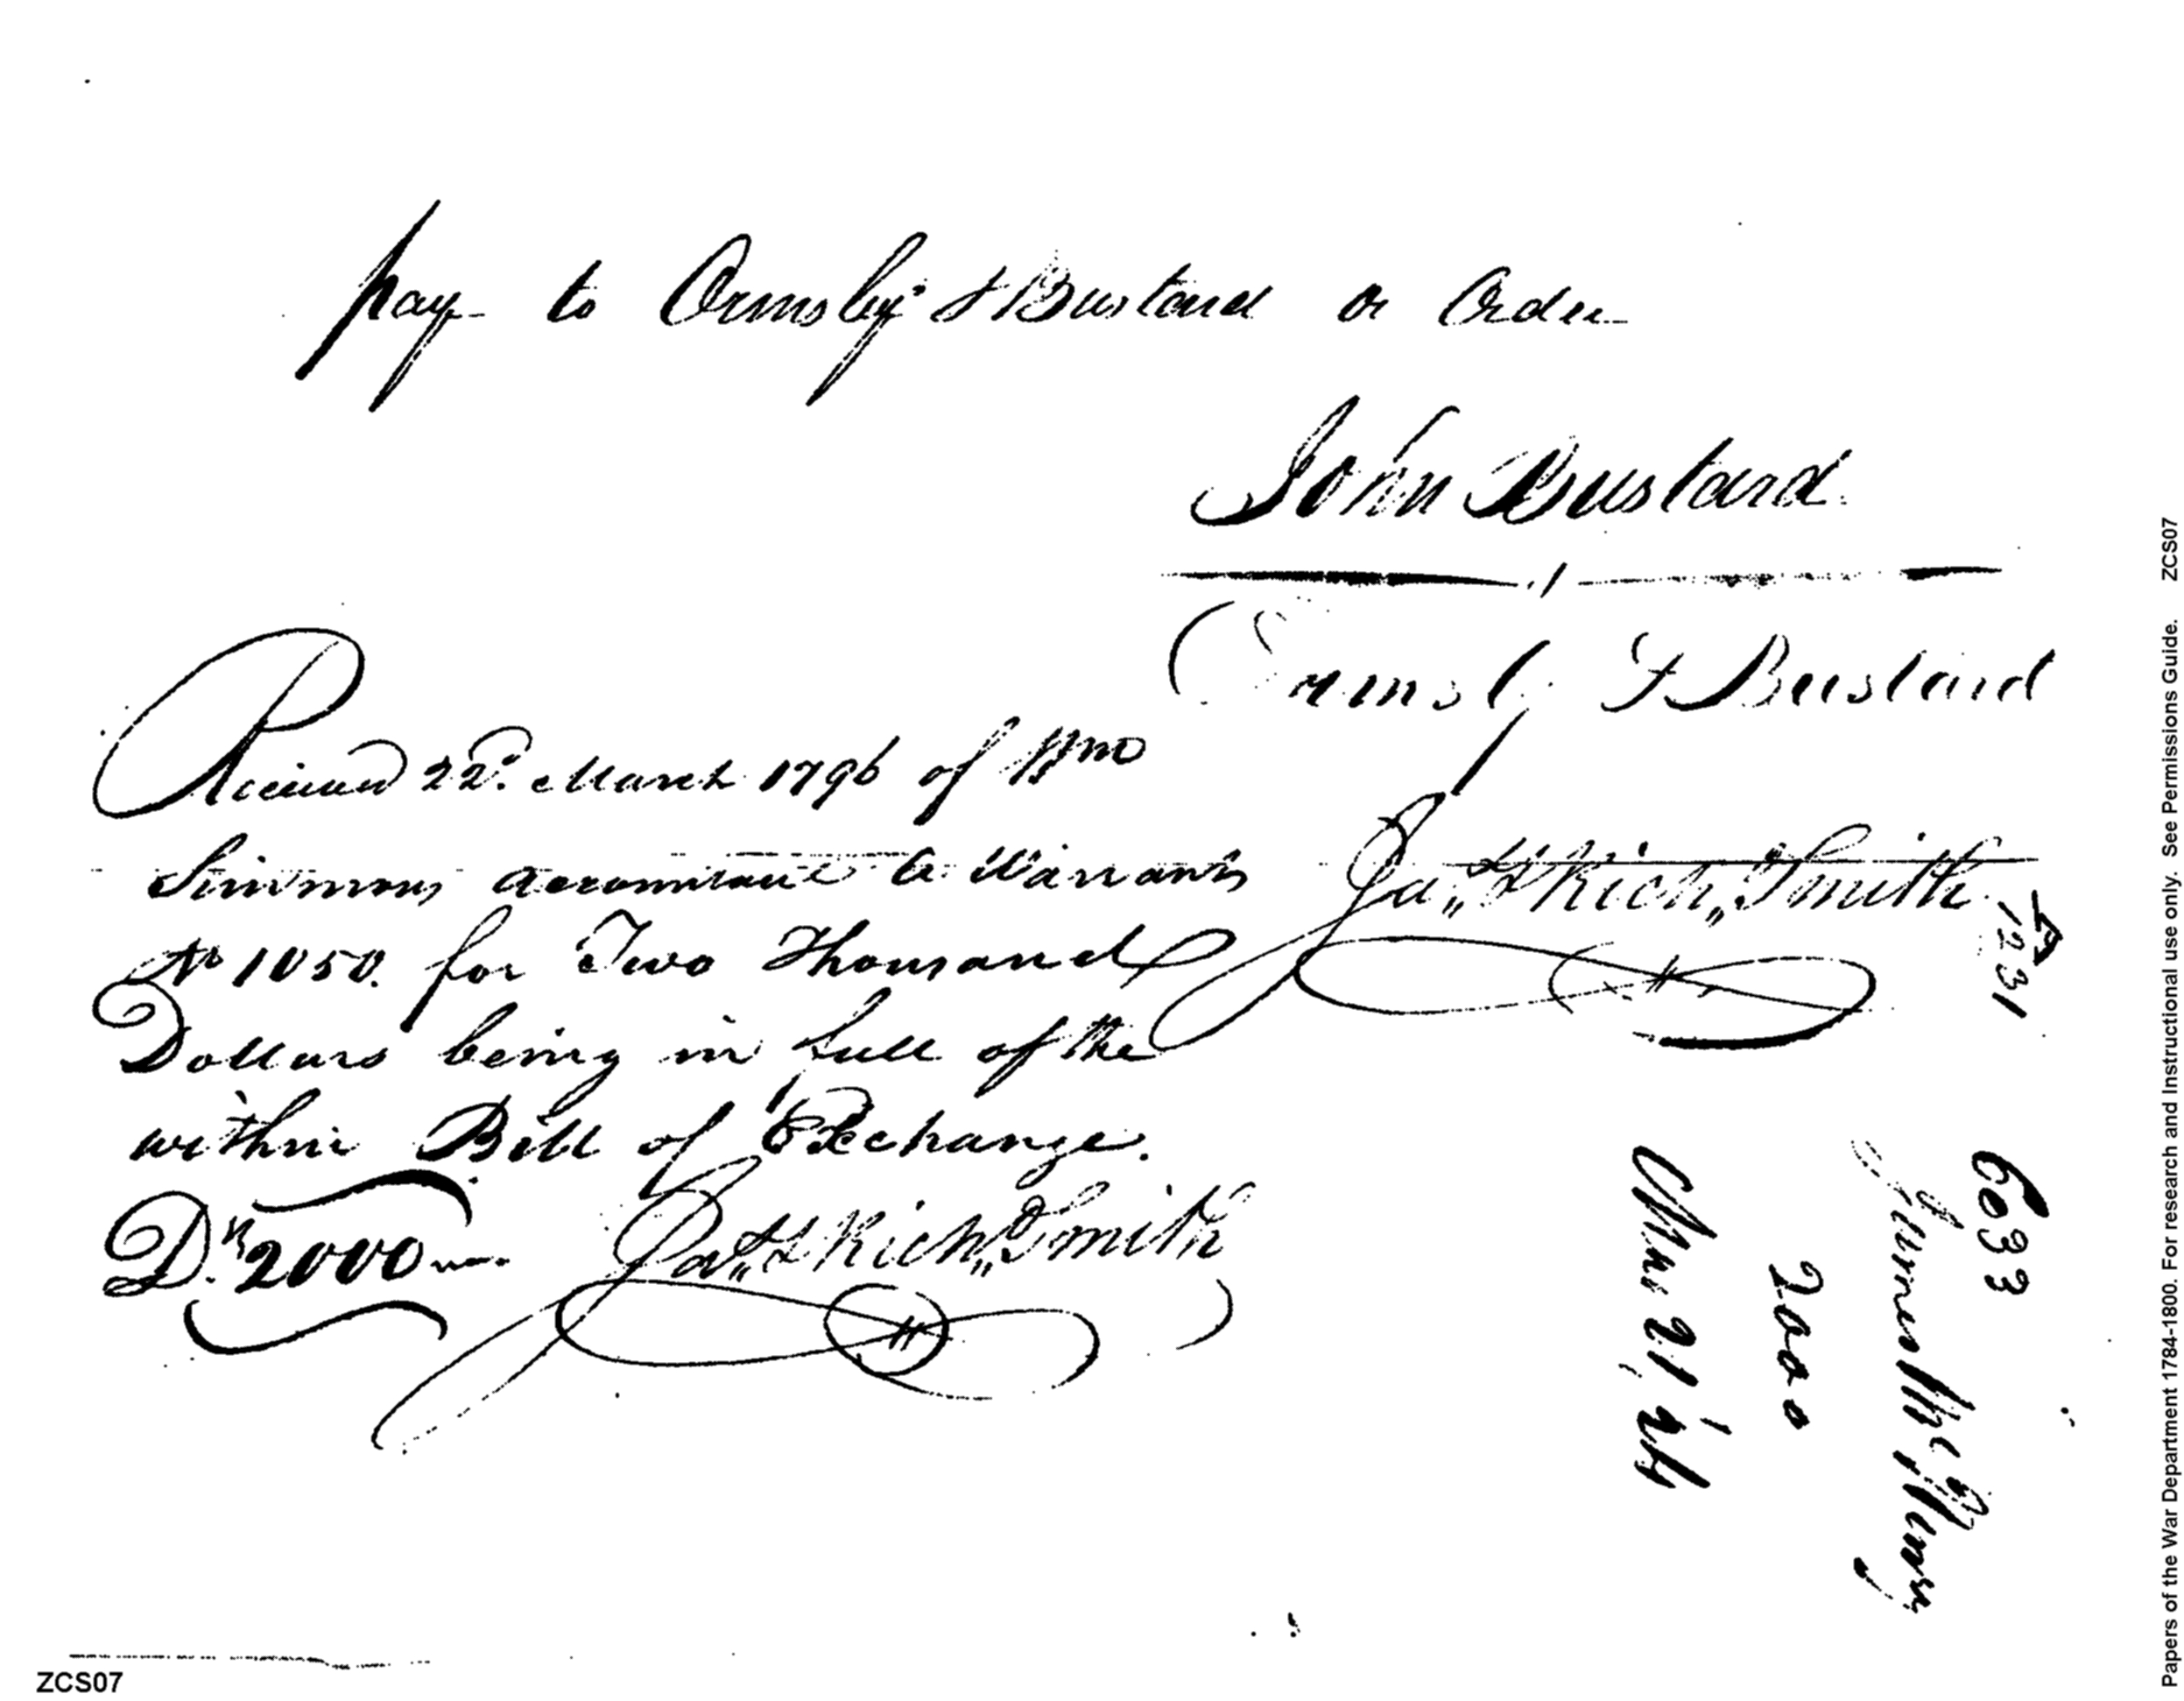 pay to Ormsby & Bustard or Order
John Bustard
Ormsby & Bustard
Received 22d. March 1796 of Wm
Simmons accomtant a Warrant
No 1050. for Two Thousand
Dollars being in full of the
within Bill of Exchange.
Drs. 2000
Ja,, & Rich,, Smith
Ja,, & Rich,, Smith
1231
633
James McHenry
2000
Mar 21
ZCS07
Papers of the War Department 1784-1800. For research and Instructional use only. See Permissions Guide. ZCS07